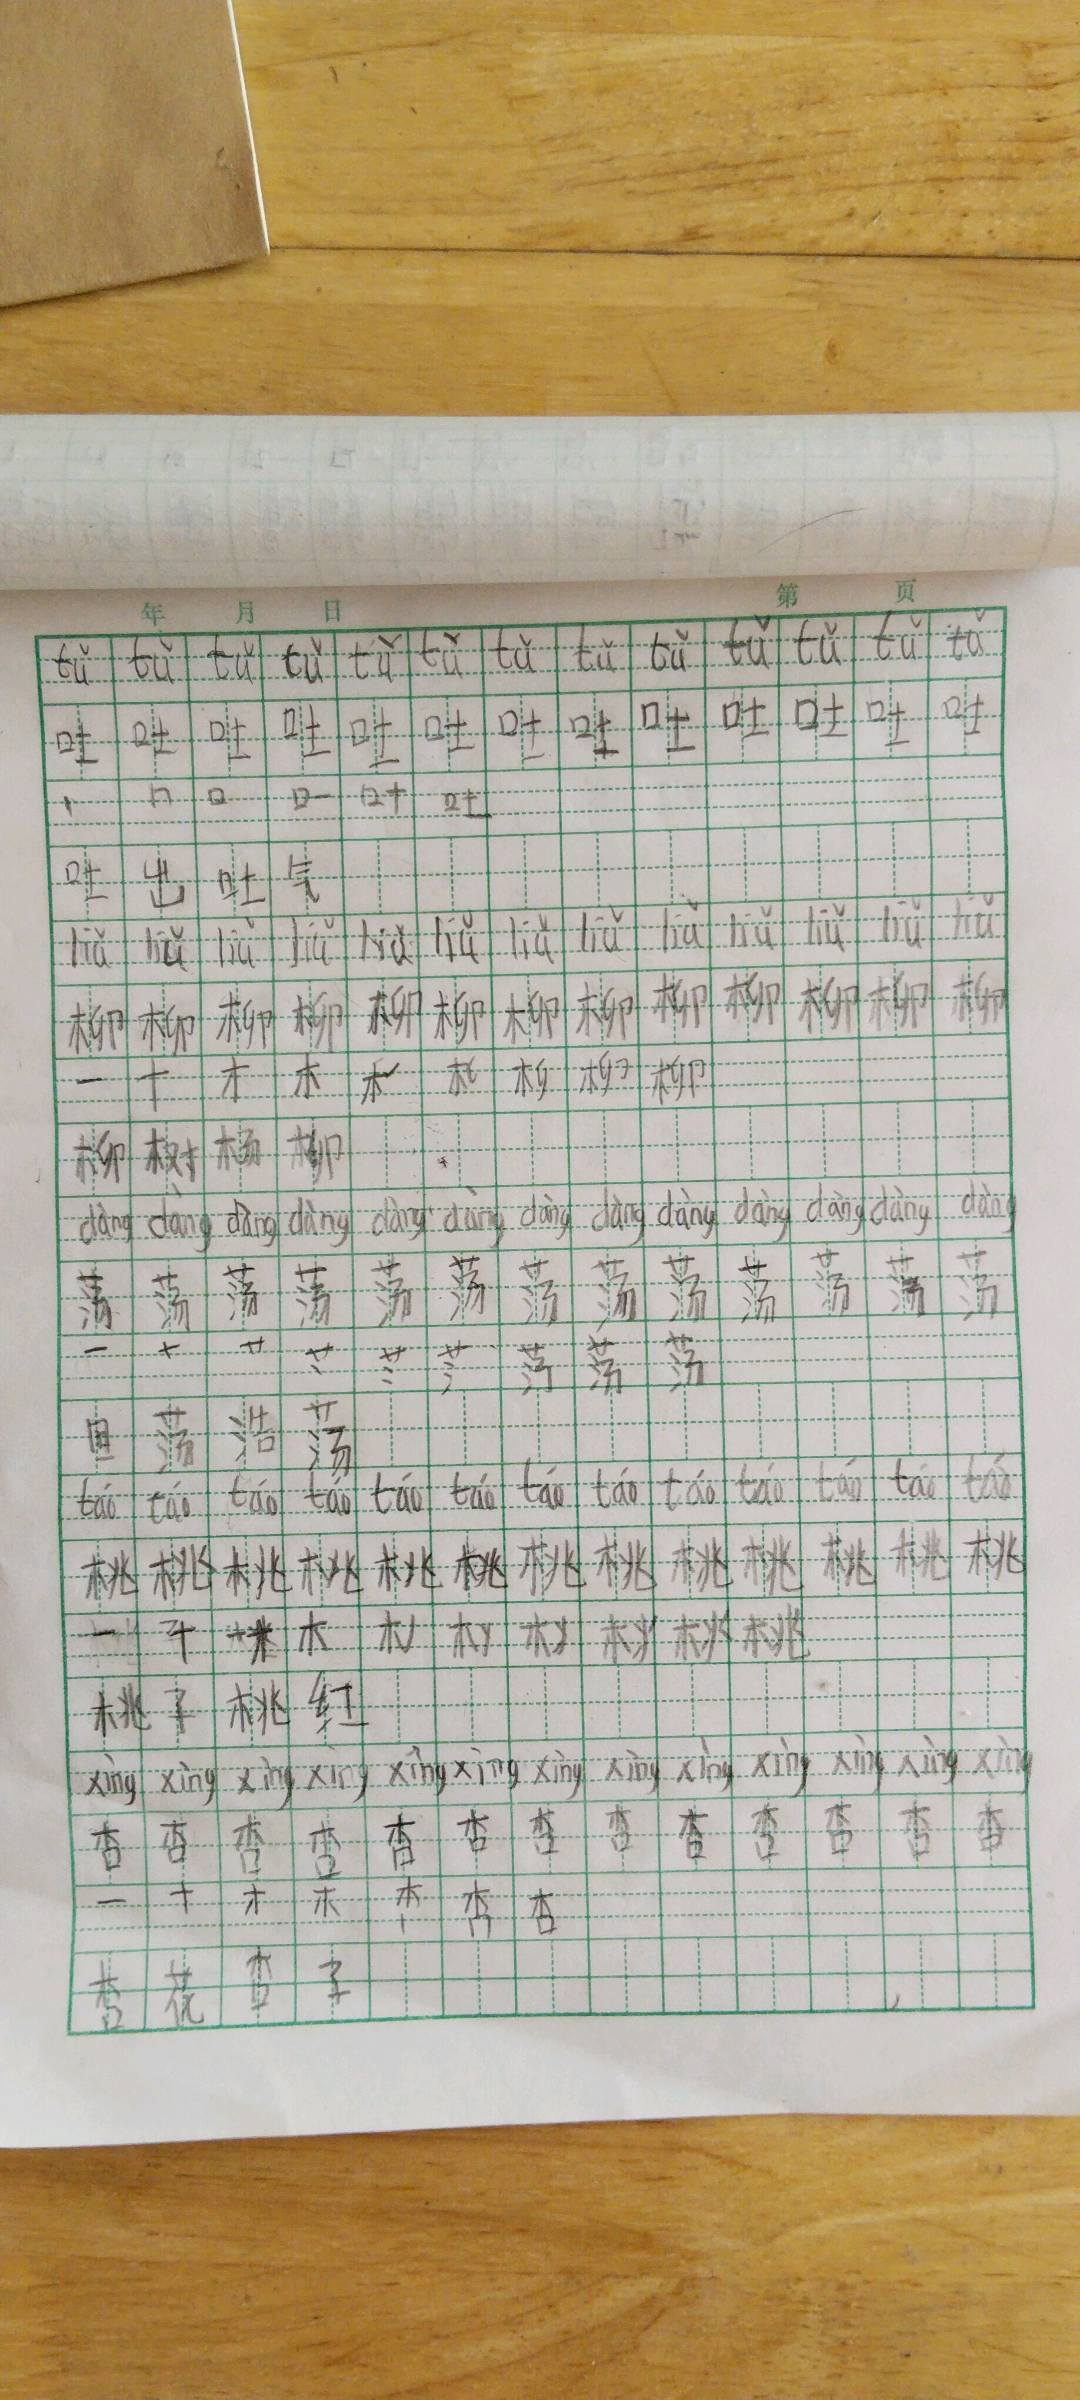 年 月 日 第 页
tǔ tǔ tǔ tǔ tǔ tǔ tǔ tǔ tǔ tǔ tǔ tǔ tǔ
吐 吐 吐 吐 吐 吐 吐 吐 吐 吐 吐 吐 吐
丨 冂 口 吐
吐 出 吐 气
liǔ liǔ liǔ liǔ liǔ liǔ liǔ liǔ liǔ liǔ liǔ liǔ liǔ
柳 柳 柳 柳 柳 柳 柳 柳 柳 柳 柳 柳 柳
一 十 才 木 柳
柳 树 杨 柳
dàng dàng dàng dàng dàng dàng dàng dàng dàng dàng dàng dàng dàng
荡 荡 荡 荡 荡 荡 荡 荡 荡 荡 荡 荡 荡
一 十 艹 荡
荡 浩 荡
táo táo táo táo táo táo táo táo táo táo táo táo táo
桃 桃 桃 桃 桃 桃 桃 桃 桃 桃 桃 桃 桃
一 木 桃
桃 子 桃 红
xìng xìng xìng xìng xìng xìng xìng xìng xìng xìng xìng xìng xìng
杏 杏 杏 杏 杏 杏 杏 杏 杏 杏 杏 杏 杏
一 十 才 木 杏
杏 花 杏 子